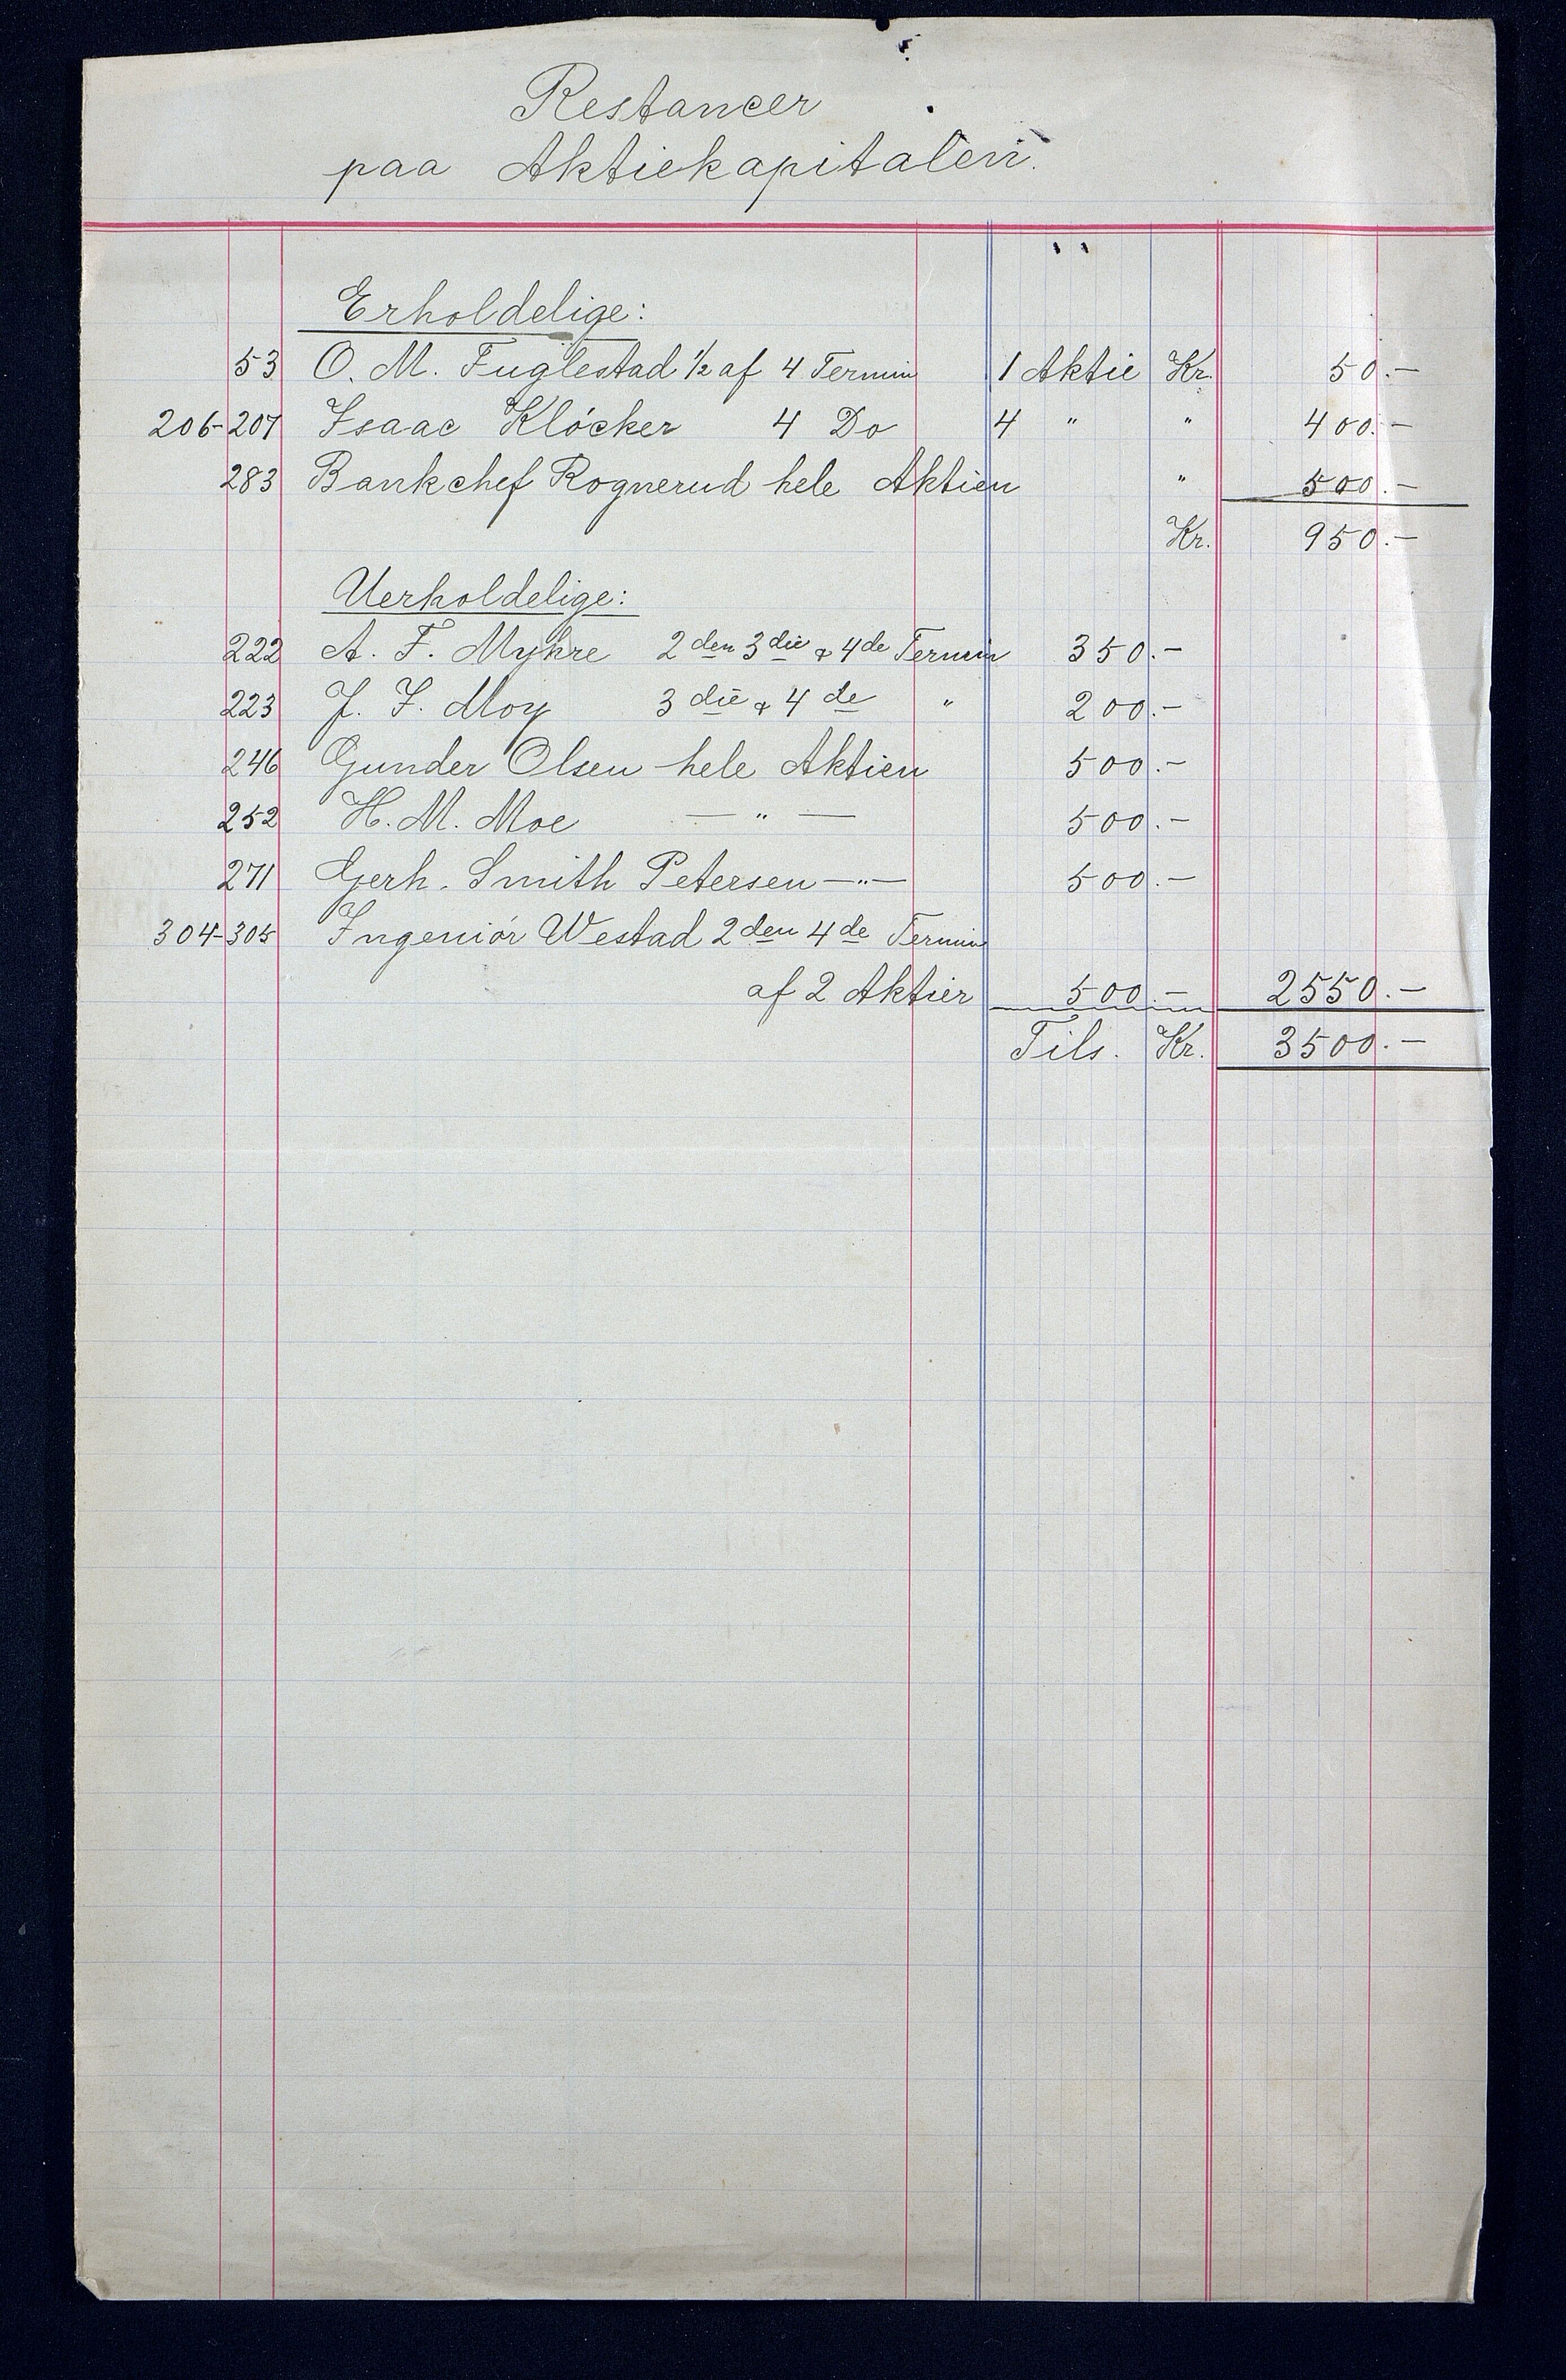 Restancer
paa Aktiekapitalen.
Erholdelige:
53 O. M. Fuglestad ½ af 4 Termin 1 Aktie Kr. 50.-
206-207 Isaac Klócker 4 Do 4 " " 400.-
283 Bankchef Rognerud hele Aktien " 500.-
Kr. 950.-
Uerholdelige:
222 A. F. Myhre 2den 3die & 4de Termin 350.-
223 J. F. Moy 3die & 4de " 200.-
246 Gunder Olsen hele Aktien 500.-
252 H. M. Moe — " — 500.-
271 Gerh. Smith Petersen —"— 500.-
304-305 Ingeniór Westad 2den 4de Termin
af 2 Aktier 500.- 2550.-
Tils. Kr. 3500.-